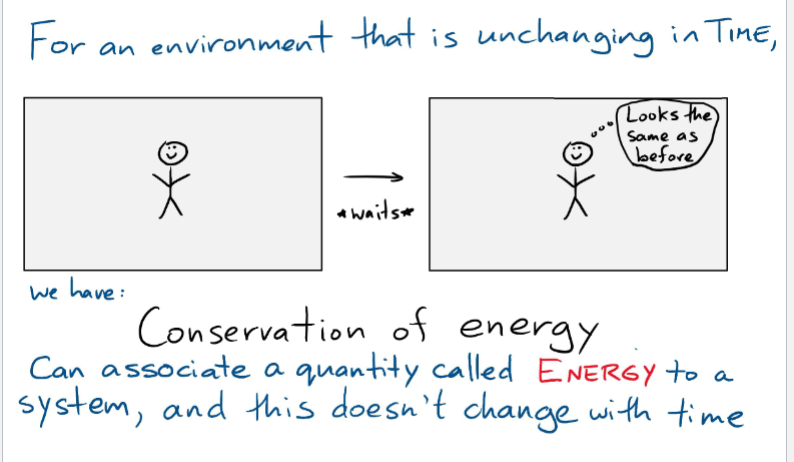 For an environment that is unchanging in TIME,
Looks the
same as
before
*waits*
we have:
Conservation of energy
Can associate a quantity called ENERGY to a
system, and this doesn't change with time